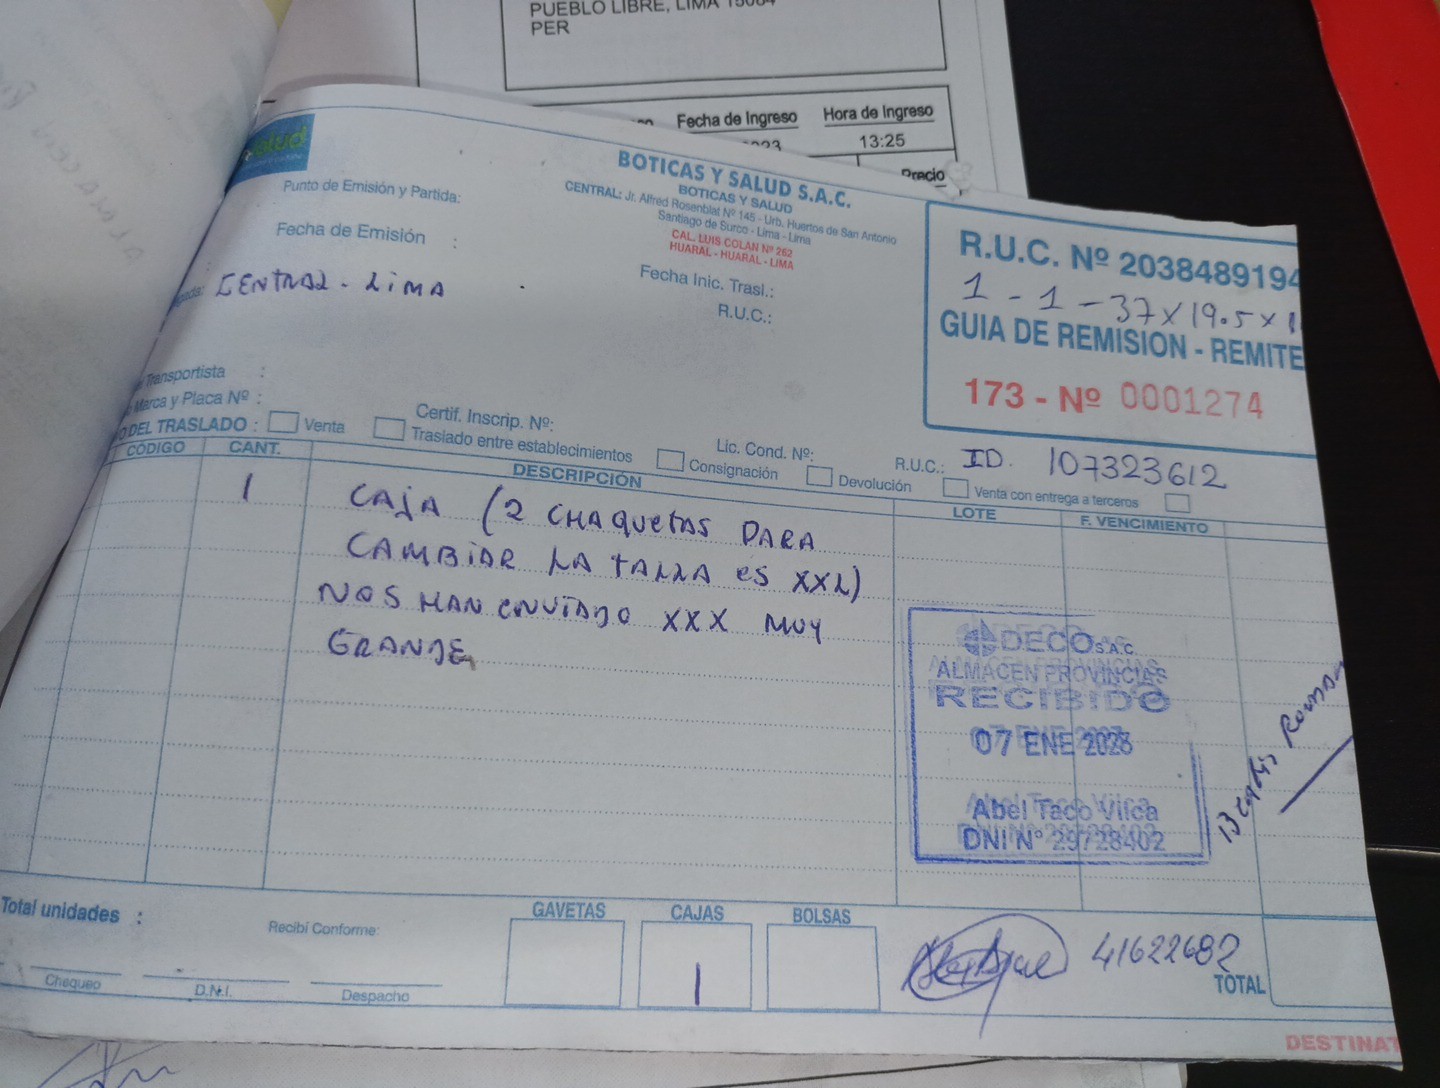 PUEBLO LIBRE, LIMA 15084
PER
Fecha de Ingreso
Hora de Ingreso
13:25
Precio
Punto de Emisión y Partida:
Fecha de Emisión :
CENTRAL - LIMA
BOTICAS Y SALUD S.A.C.
BOTICAS Y SALUD
CENTRAL: Jr. Alfred Rosenblat Nº 145 - Urb. Huertos de San Antonio
Santiago de Surco - Lima - Lima
CAL. LUIS COLAN Nº 262
HUARAL - HUARAL - LIMA
Fecha Inic. Trasl.:
R.U.C.:
R.U.C. Nº 2038489194
1 - 1 - 37 x 19.5 x
GUIA DE REMISION - REMITE
173 - Nº 0001274
Transportista :
Marca y Placa Nº :
Certif. Inscrip. Nº:
Lic. Cond. Nº:
R.U.C.: ID. 107323612
O DEL TRASLADO : Venta Traslado entre establecimientos Consignación Devolución Venta con entrega a terceros
CÓDIGO CANT. DESCRIPCIÓN LOTE F. VENCIMIENTO
1 CAJA (2 CHAQUETAS PARA
CAMBIAR LA TALLA ES XXL)
NOS HAN ENVIADO XXX MUY
GRANDE
DECO S.A.C.
ALMACEN PROVINCIAS
RECIBIDO
07 ENE 2023
Abel Taco Vilca
DNI Nº 29728402
Total unidades :
Recibí Conforme:
Chequeo
D.N.I.
Despacho
GAVETAS CAJAS BOLSAS
1
41622682
TOTAL
DESTINAT